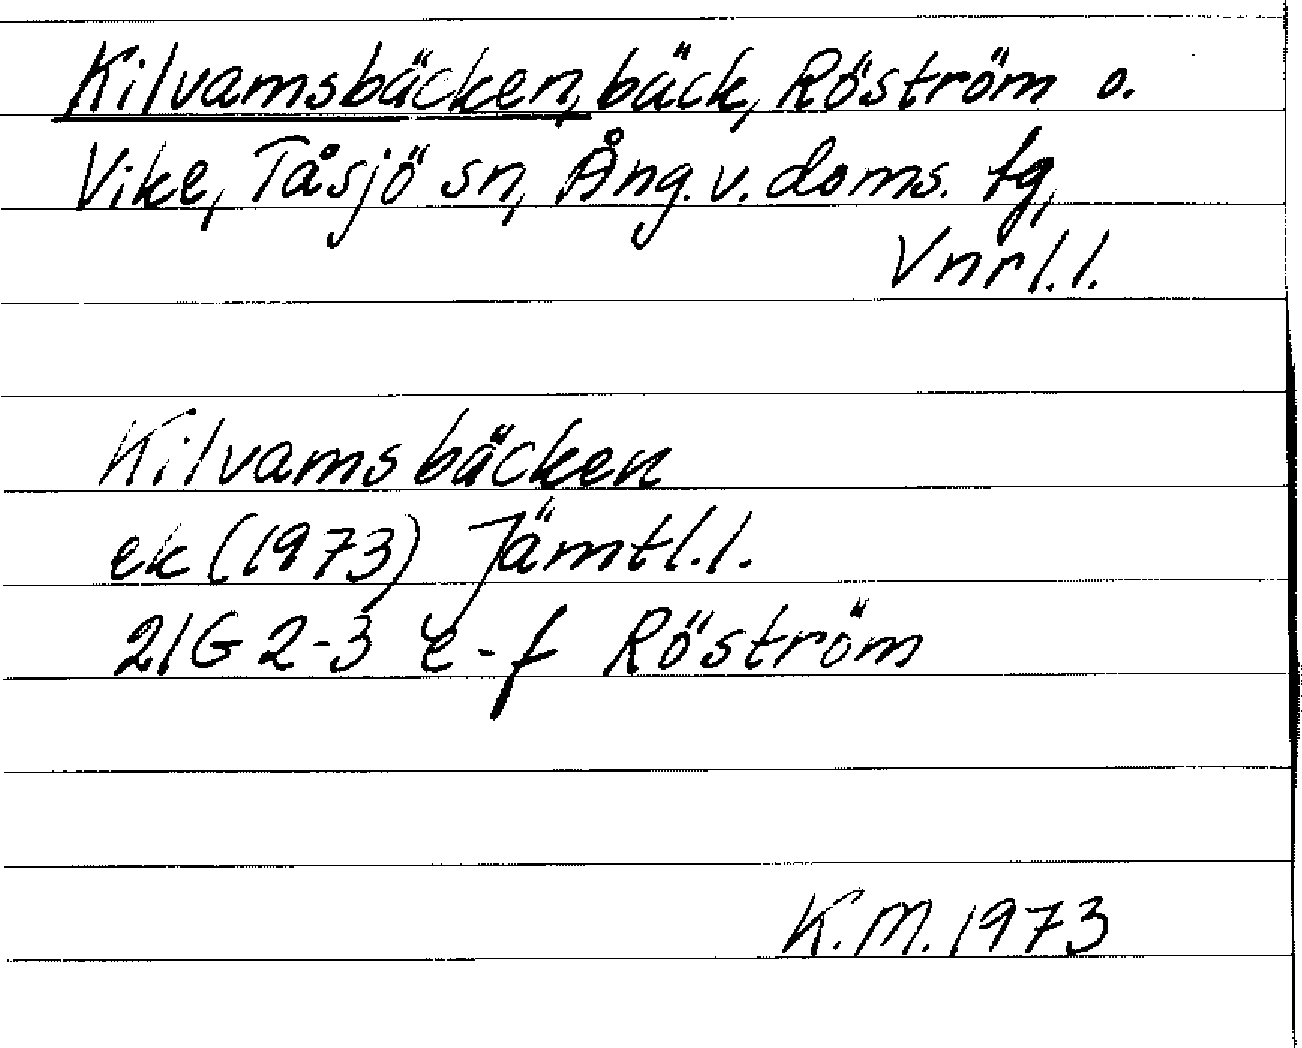 Kilvamsbäcken, bäck, Röström o.
Vike, Tåsjö sn, Ång. v. doms. tg,
Vnrl.l.
Kilvamsbäcken
ek (1973) Jämtl.l.
21G 2-3 e-f Röström
K.M. 1973